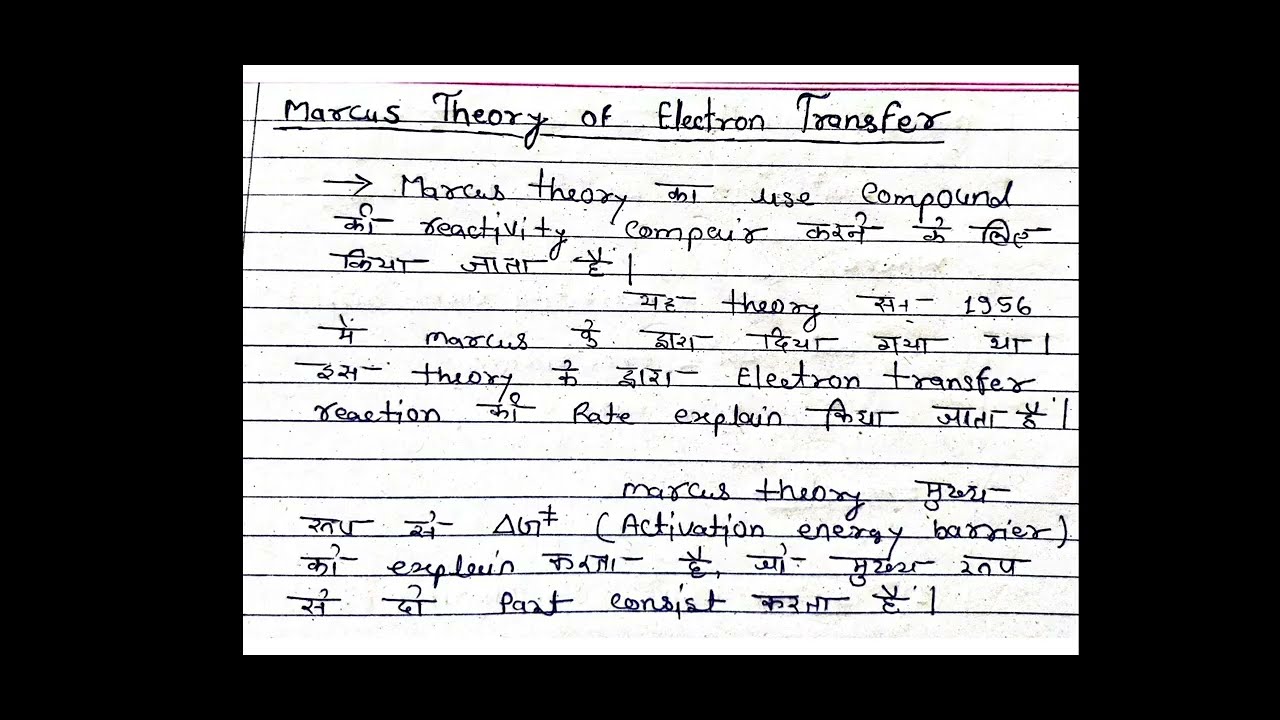 Marcus Theory of Electron Transfer
→ Marcus theory का use compound
की reactivity compair करने के लिए
किया जाता है।
यह theory सन 1956
में marcus के द्वारा दिया गया था।
इस theory के द्वारा Electron transfer
reaction की Rate explain किया जाता है।
marcus theory मुख्य
रूप से ΔG‡ (Activation energy barrier)
को explain करता है, जो मुख्य रूप
से दो Part consist करता है।